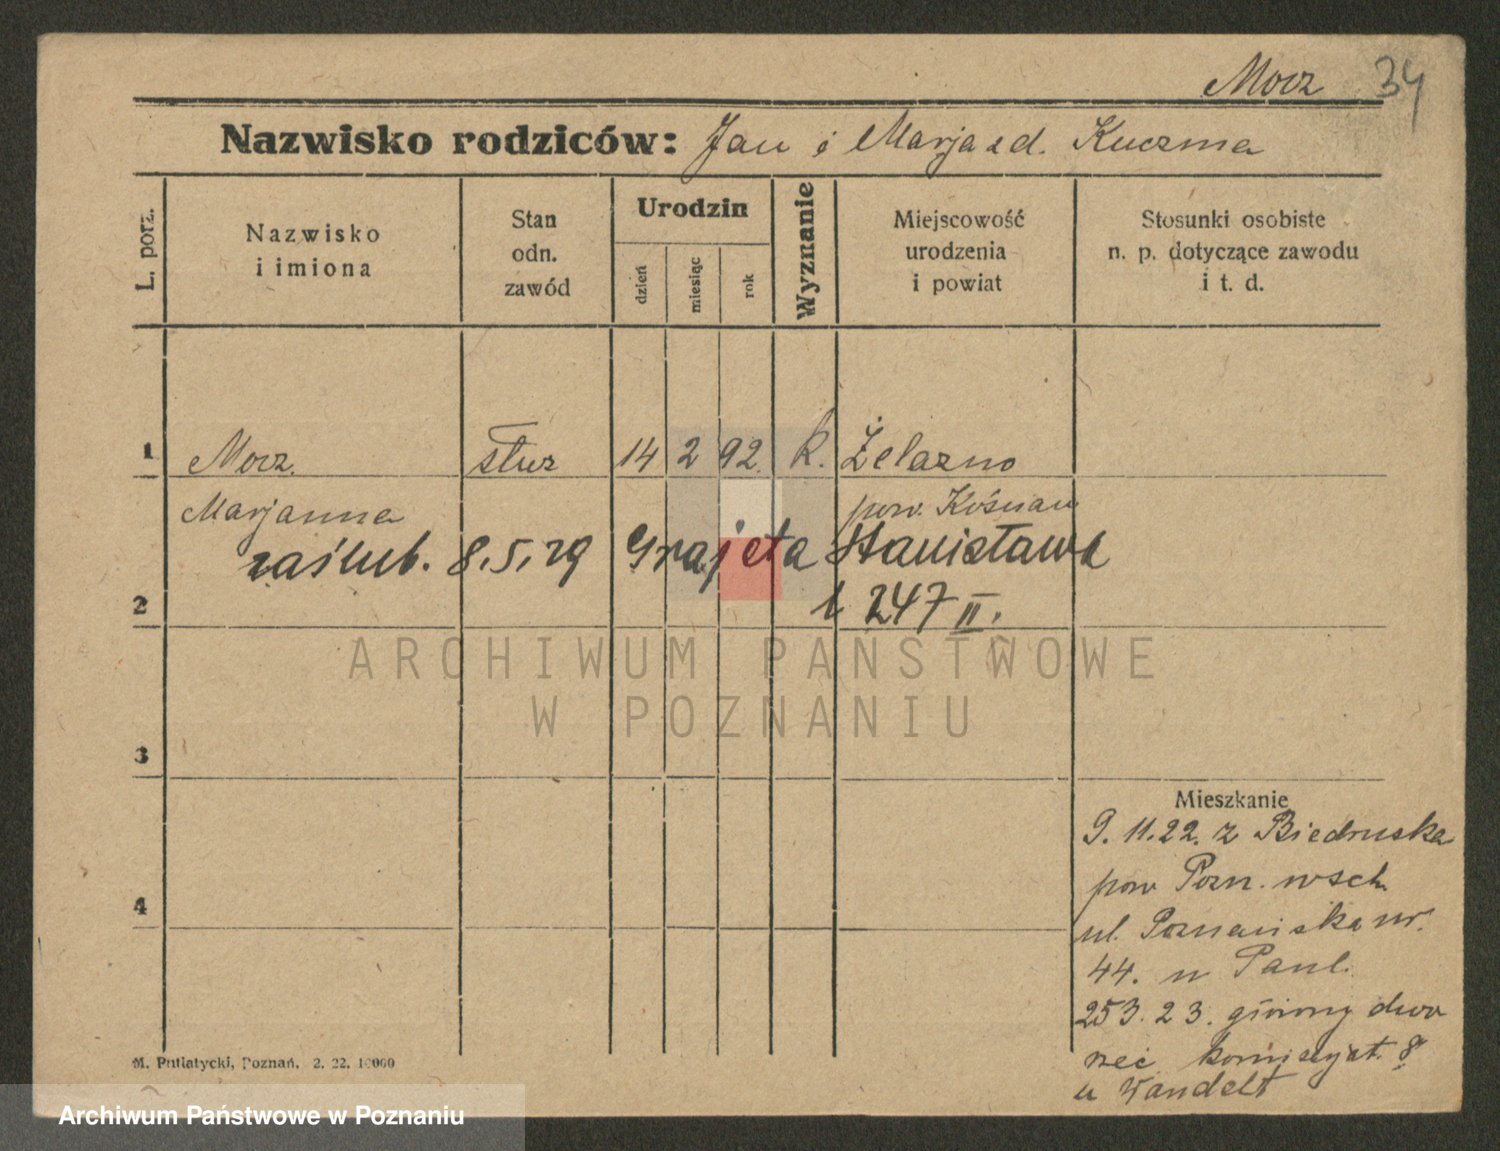 Mocz 34
Nazwisko rodziców: Jan i Marja zd. Kuczma
L. porz.
Nazwisko
i imiona
Stan
odn.
zawód
Urodzin
dzień
miesiąc
rok
Wyznanie
Miejscowość
urodzenia
i powiat
Stosunki osobiste
n. p. dotyczące zawodu
i t. d.
1 Mocz. służ 14 2 92. k. Żelazno
Marjanna pow. Kościan
zaślub. 8.5.29 Grajeta Stanisława
2 247 II.
ARCHIWUM PAŃSTWOWE
W POZNANIU
3
Mieszkanie
9. 11. 22. z Biedruska
4 pow Pozn. wsch
ul. Poznańska nr.
44. u Paul.
25 3. 23. główny dwo
rzec komisarjat. 8
u Wandelt
M. Putiatycki, Poznań. 2. 22. 10000
Archiwum Państwowe w Poznaniu